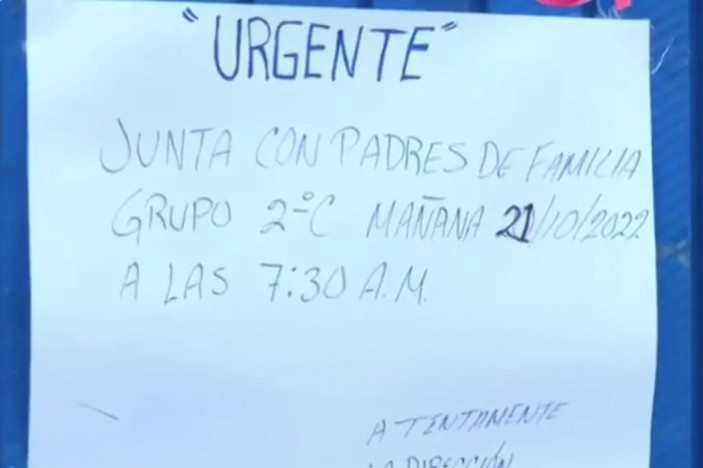 "URGENTE"
JUNTA CON PADRES DE FAMILIA
GRUPO 2-°C MAÑANA 21/10/2022
A LAS 7:30 A.M.
ATENTAMENTE
LA DIRECCIÓN